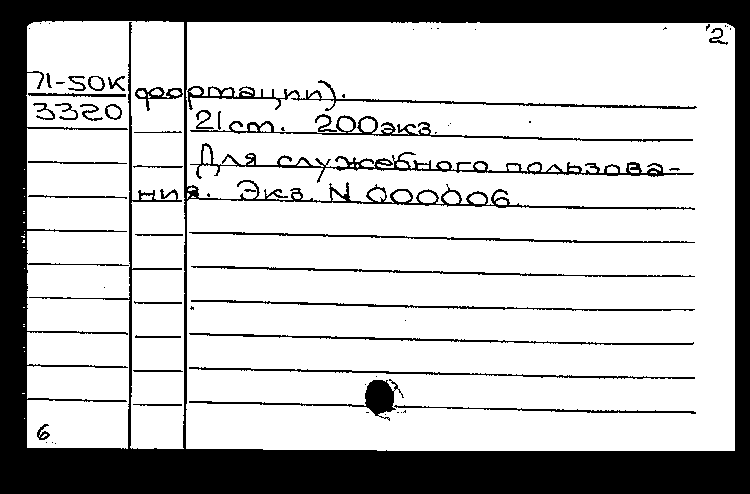 2
71-50К формации).
3320 21 ст. 200 экз.
Для служебного пользова-
ния. Экз. N 000006
6